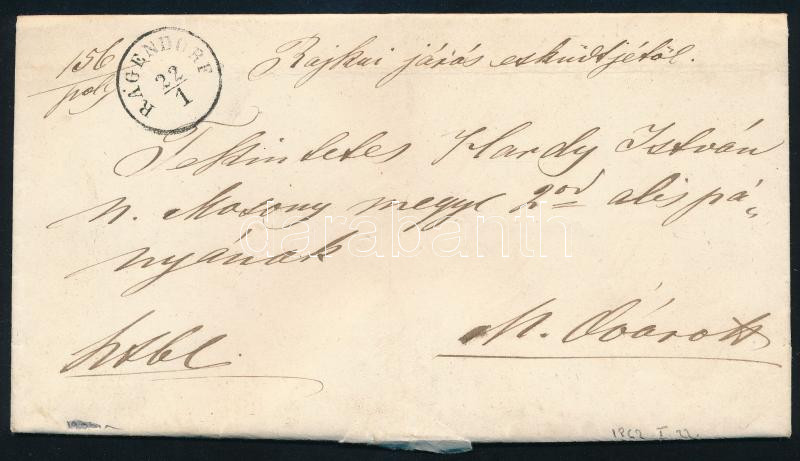 156
RAGENDORF
22/1
Rajkai járás esküdtjétöl.
Tekintetes Hardy István
n. Mosony megye 2od alispá„
nyának
M. Óvárott
1862 I. 22.
darabanth